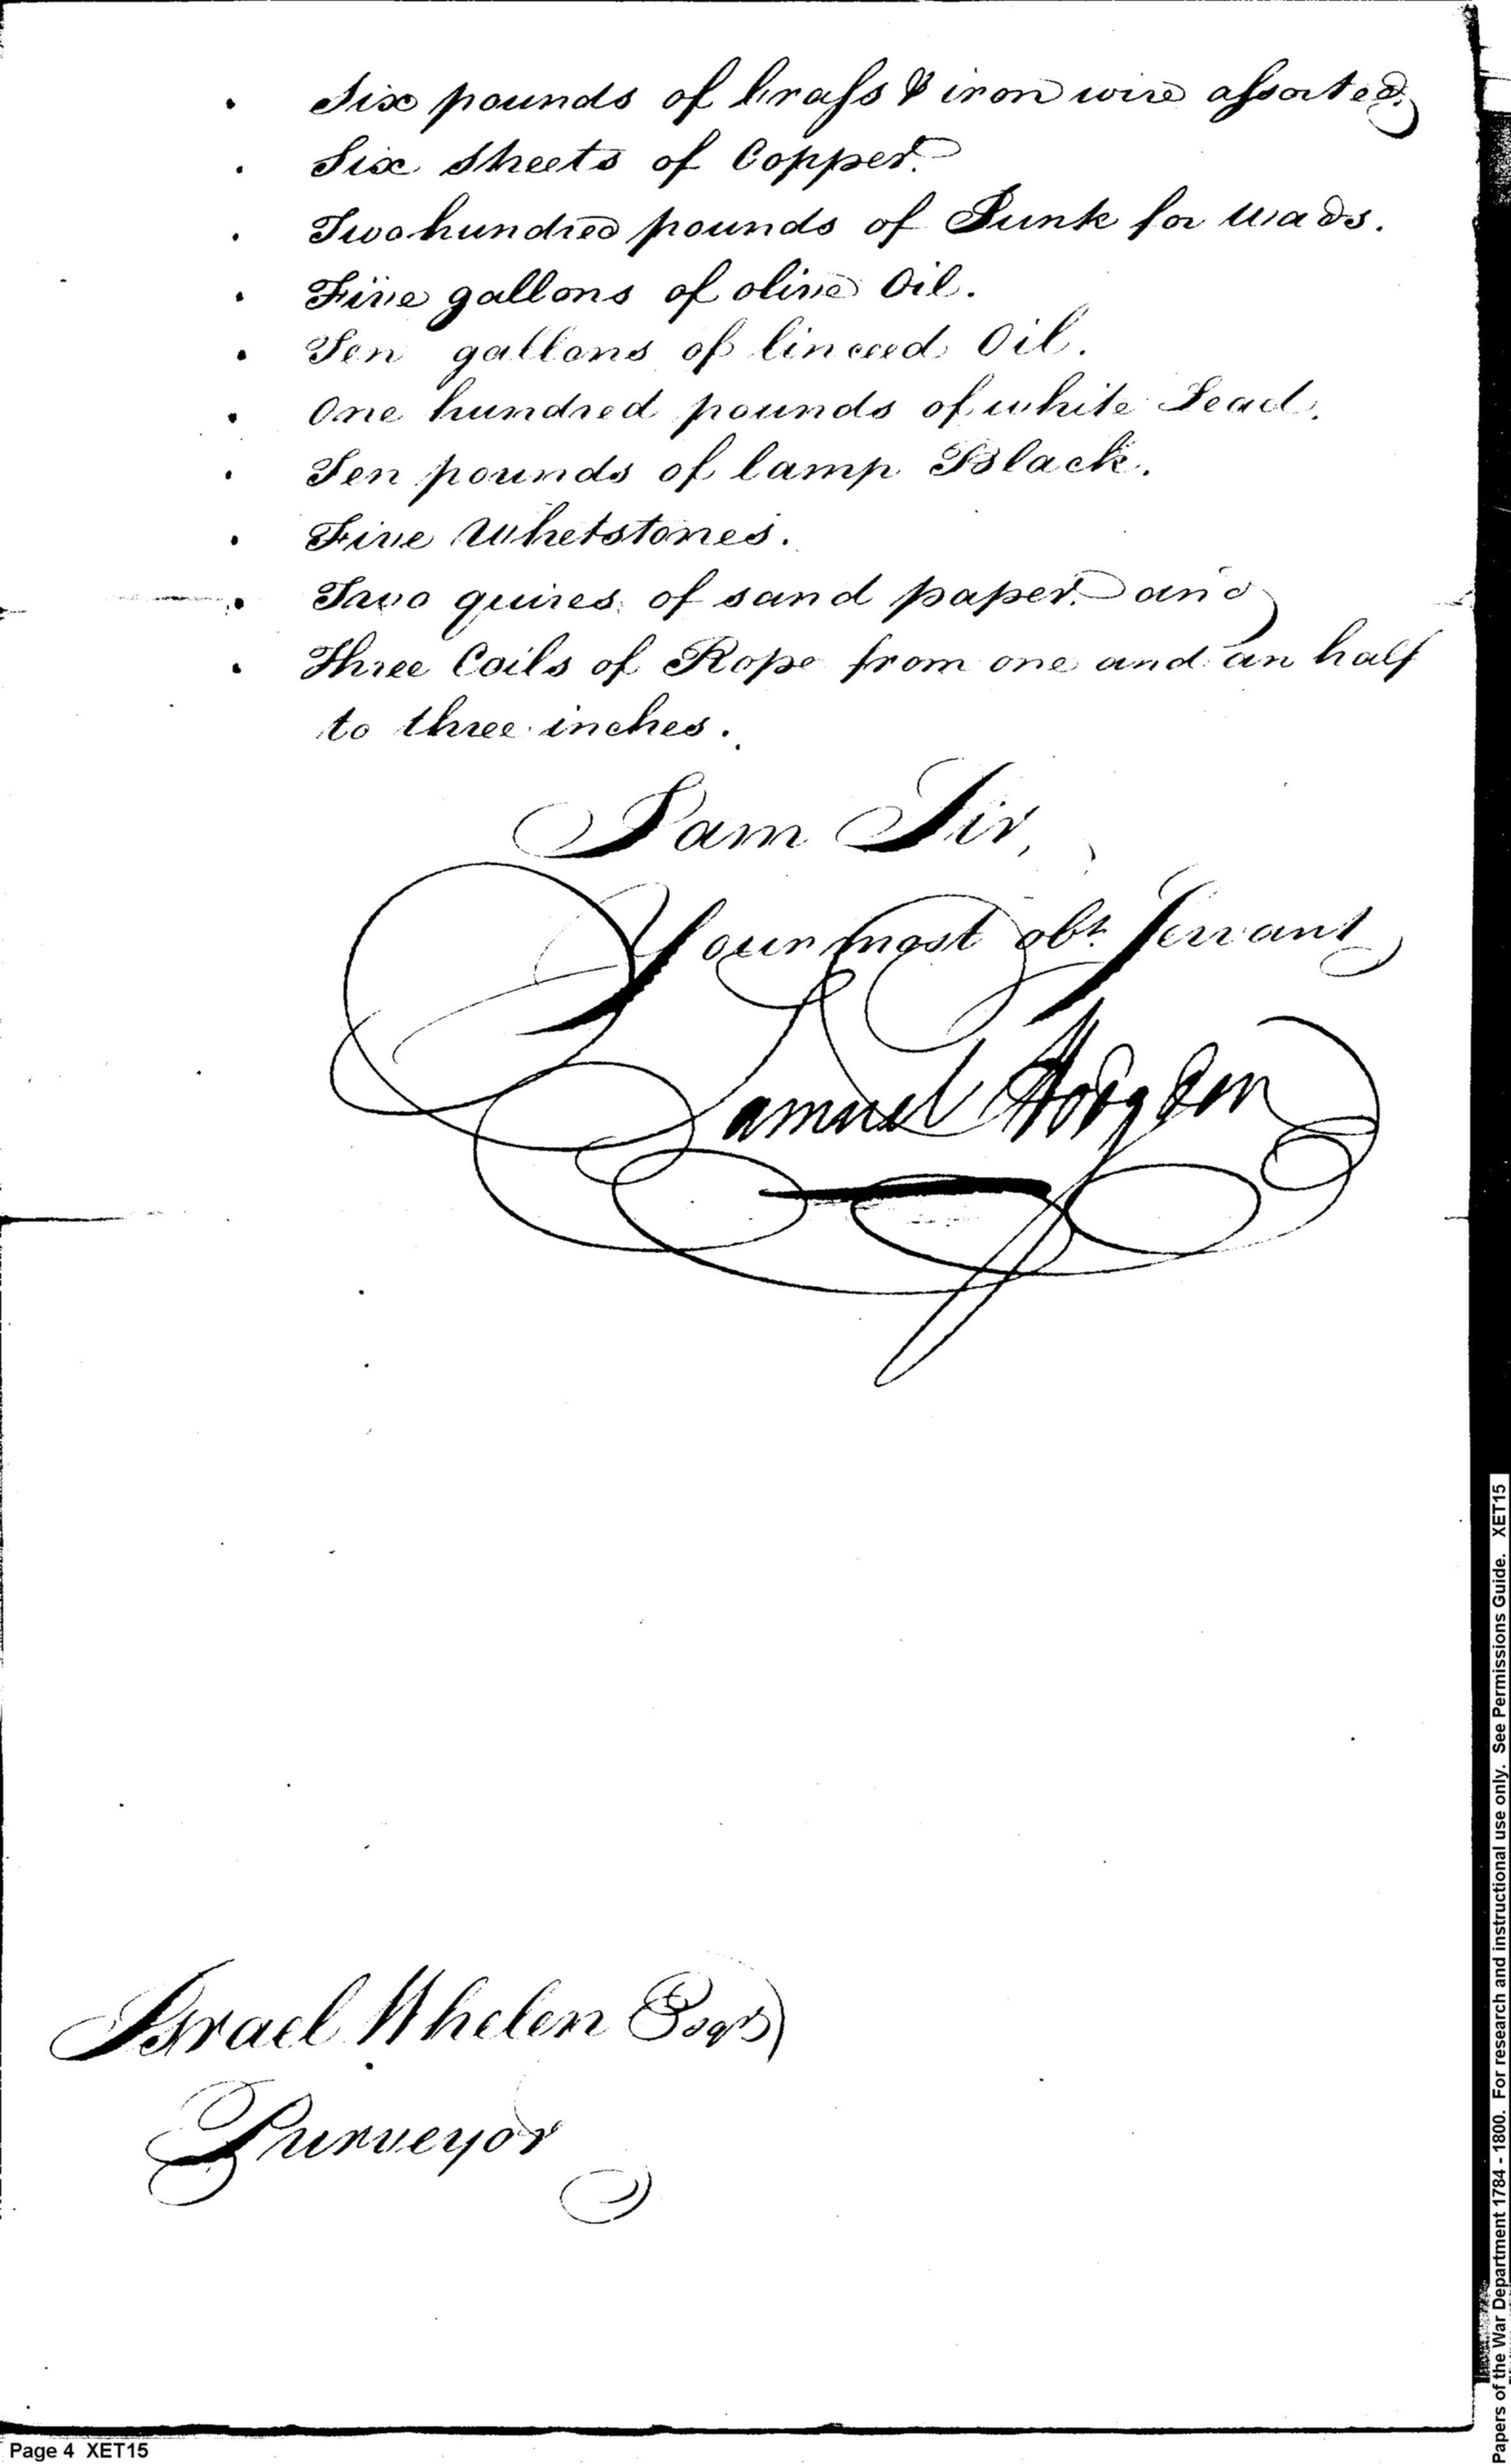 Six pounds of brass & iron wire assorted.
Six Sheets of Copper.
Two hundred pounds of Junk for wads.
Five gallons of olive Oil.
Ten gallons of linceed Oil.
One hundred pounds of white Lead.
Ten pounds of lamp Black.
Five Whetstones.
Two quires of sand paper. and
Three Coils of Rope from one and an half
to three inches.
I am Sir,
Your most obt. Servant
Samuel Hodgdon
Israel Whelen Esqr
Purveyor
Page 4 XET15
Papers of the War Department 1784 - 1800. For research and instructional use only. See Permissions Guide. XET15